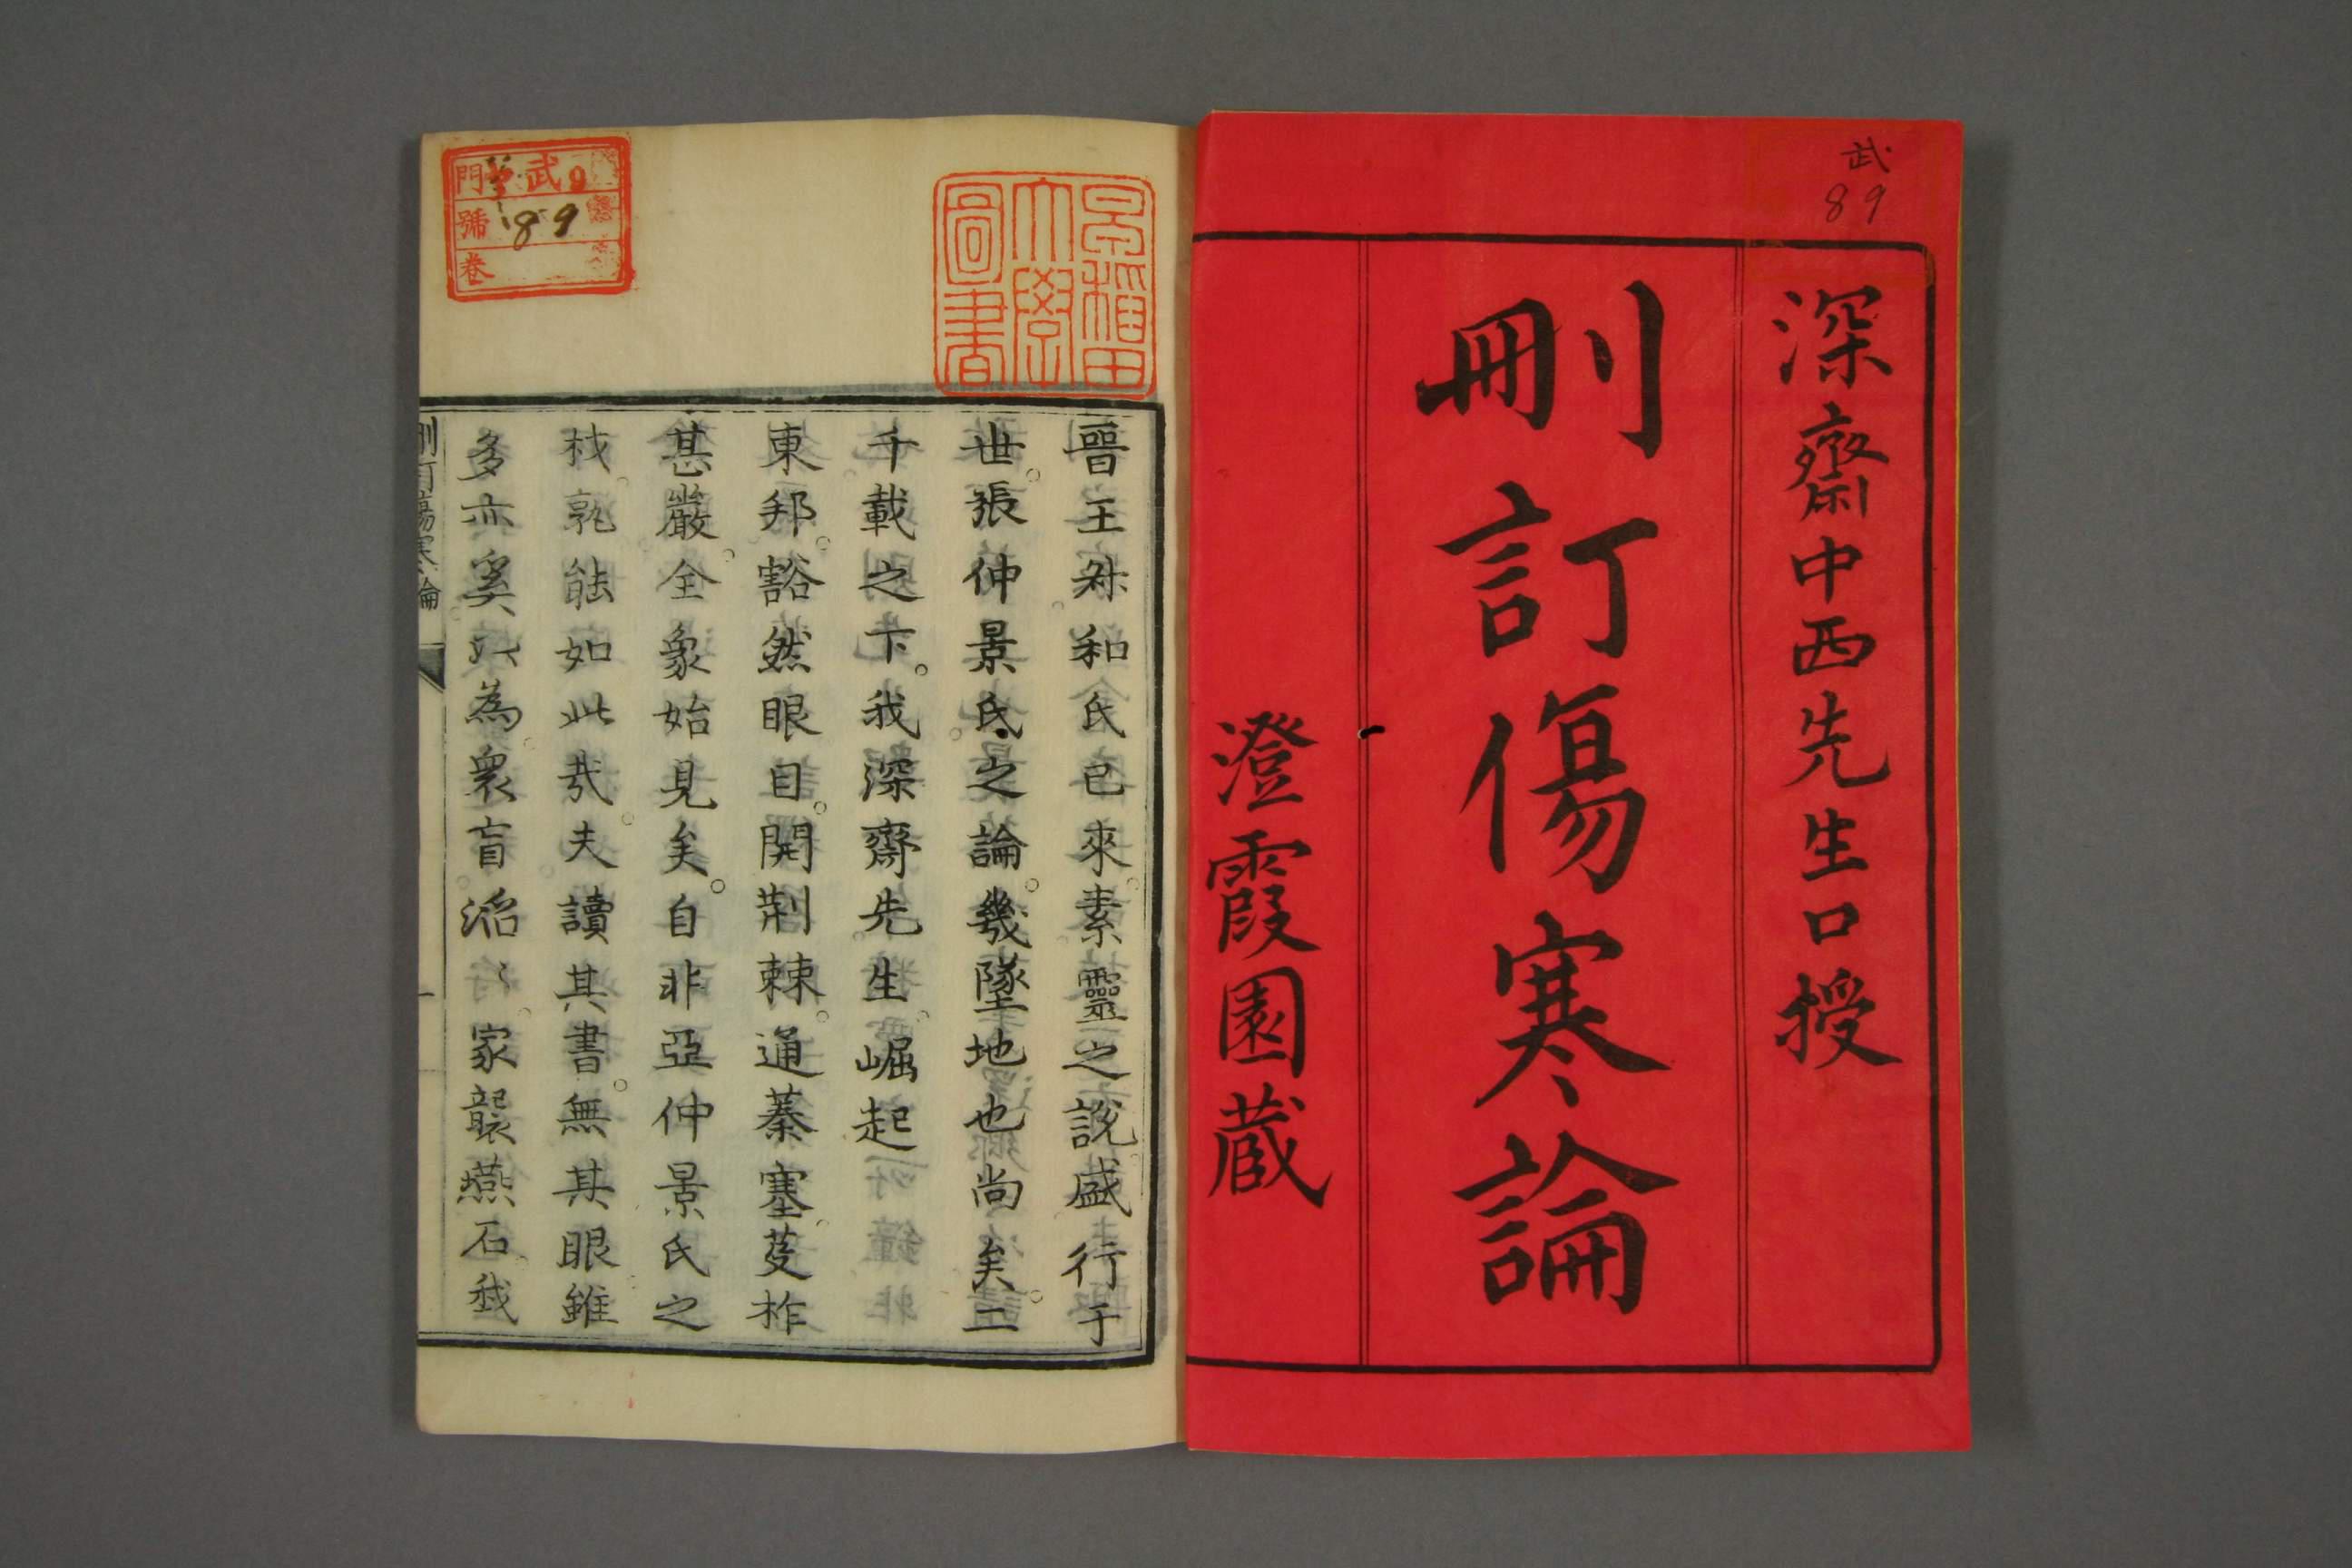 武
89
深齋中西先生口授
刪訂傷寒論
澄霞園蔵
早稲田
大學
圖書
門 武9
號 89
卷
晉王叔和氏已來素靈之說盛行于
世張仲景氏之論幾墜地也尚矣二
千載之下我深齋先生崛起
東邦豁然眼目開荆棘通蓁塞芟柞
甚嚴全象始見矣自非亞仲景氏之
材孰能如此哉夫讀其書無其眼雖
多亦奚以為衆盲滔〻家襲燕石
刪訂傷寒論
一